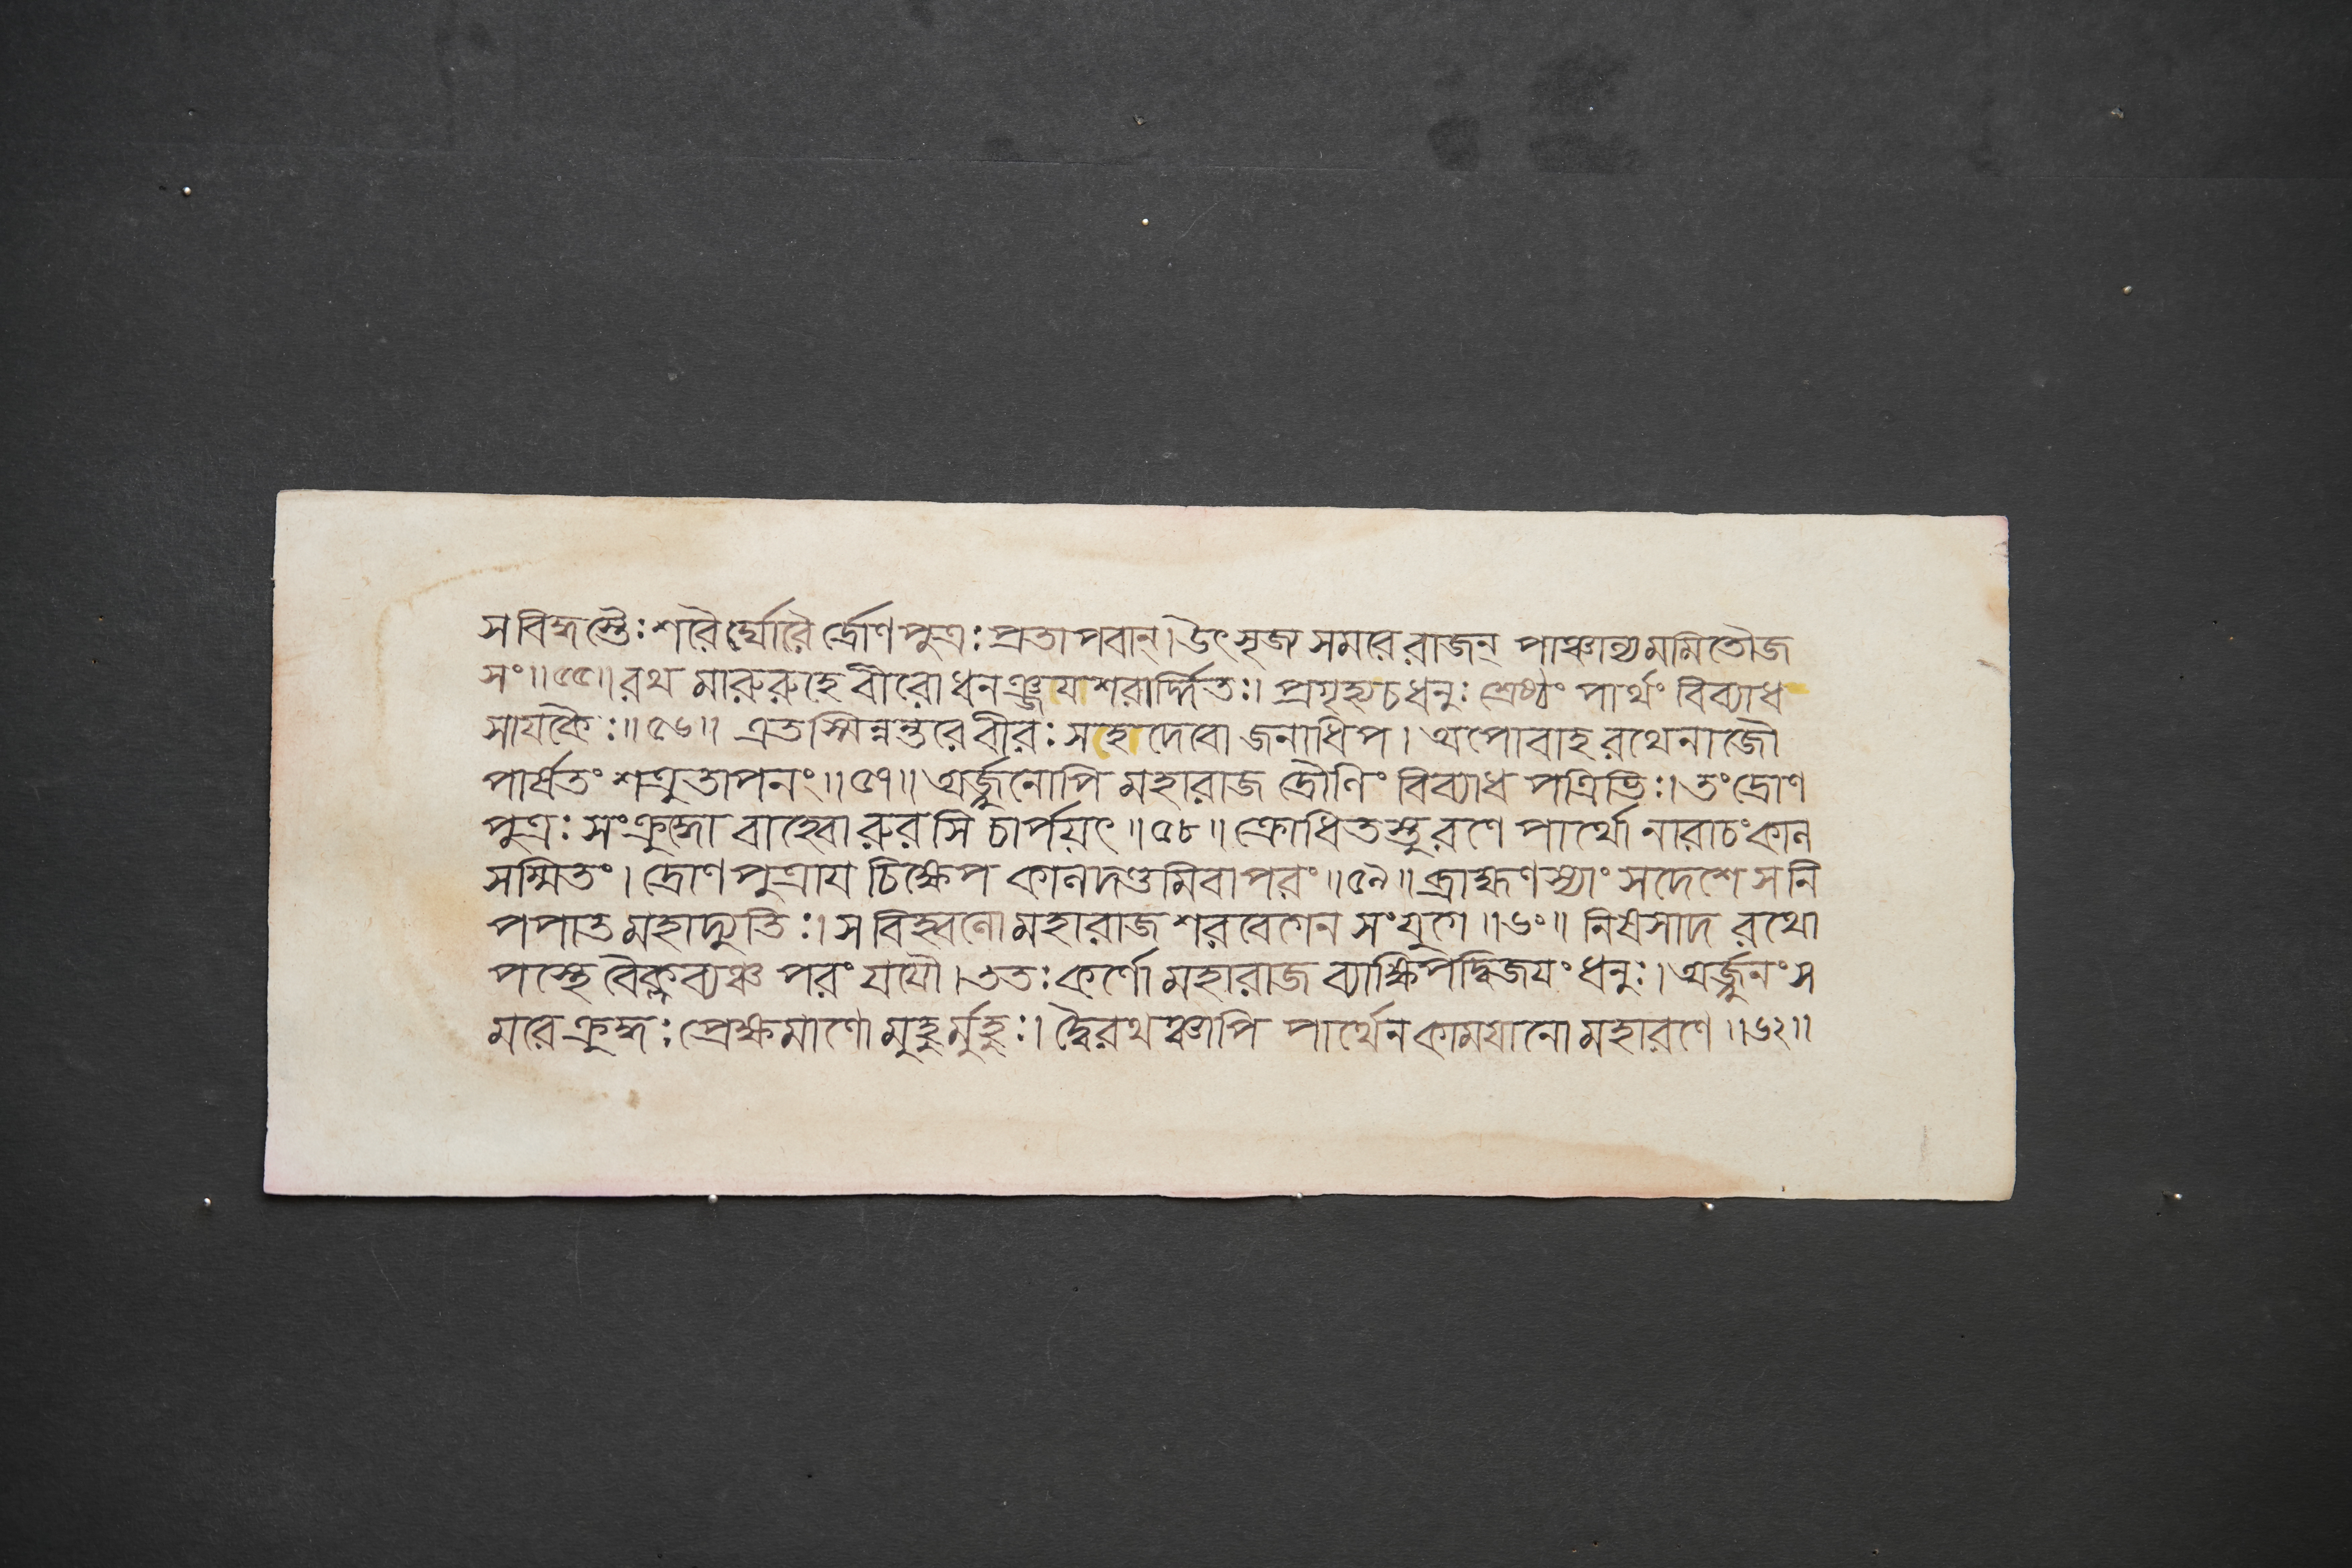 স বিদ্ধস্তৈঃ শরৈর্ঘোরৈর্দ্রোণপুত্রঃ প্রতাপবান্। উৎসৃজ্য সমরে রাজন্ পাঞ্চাল্যমমিতৌজ
সং॥৫৫॥ রথ মারুরুহে বীরো ধনঞ্জয়শরার্দ্দিতঃ। প্রগৃহ্য চ ধনুঃ শ্রেষ্ঠং পার্থং বিব্যাধ
সায়কৈঃ॥৫৬॥ এতস্মিন্নন্তরে বীরঃ সহদেবো জনাধিপ। অপোবাহ রথেনাজৌ
পার্ষতং শত্রুতাপনং॥৫৭॥ অর্জ্জুনোপি মহারাজ দ্রৌণিং বিব্যাধ পত্রিভিঃ। তং দ্রোণ
পুত্রঃ সংক্রুদ্ধো বাহ্বোরুরসি চার্পয়ৎ॥৫৮॥ ক্রোধিতস্তু রণে পার্থো নারাচং কাল
সম্মিতং। দ্রোণপুত্রায় চিক্ষেপ কালদণ্ডমিবাপরং॥৫৯॥ ব্রাহ্মণস্যাংসদেশে স নি
পপাত মহাদ্যুতিঃ। স বিহ্বলো মহারাজ শরবেগেন সংযুগে॥৬০॥ নিষসাদ রথো
পস্থে বৈক্লব্যঞ্চ পরং যযৌ। ততঃ কর্ণো মহারাজ ব্যাক্ষিপদ্বিজয়ং ধনুঃ। অর্জ্জুনং স
মরে ক্রুদ্ধঃ প্রেক্ষমাণো মুহুর্মুহুঃ। দ্বৈরথঞ্চাপি পার্থেন কাময়ানো মহারণে॥৬২॥